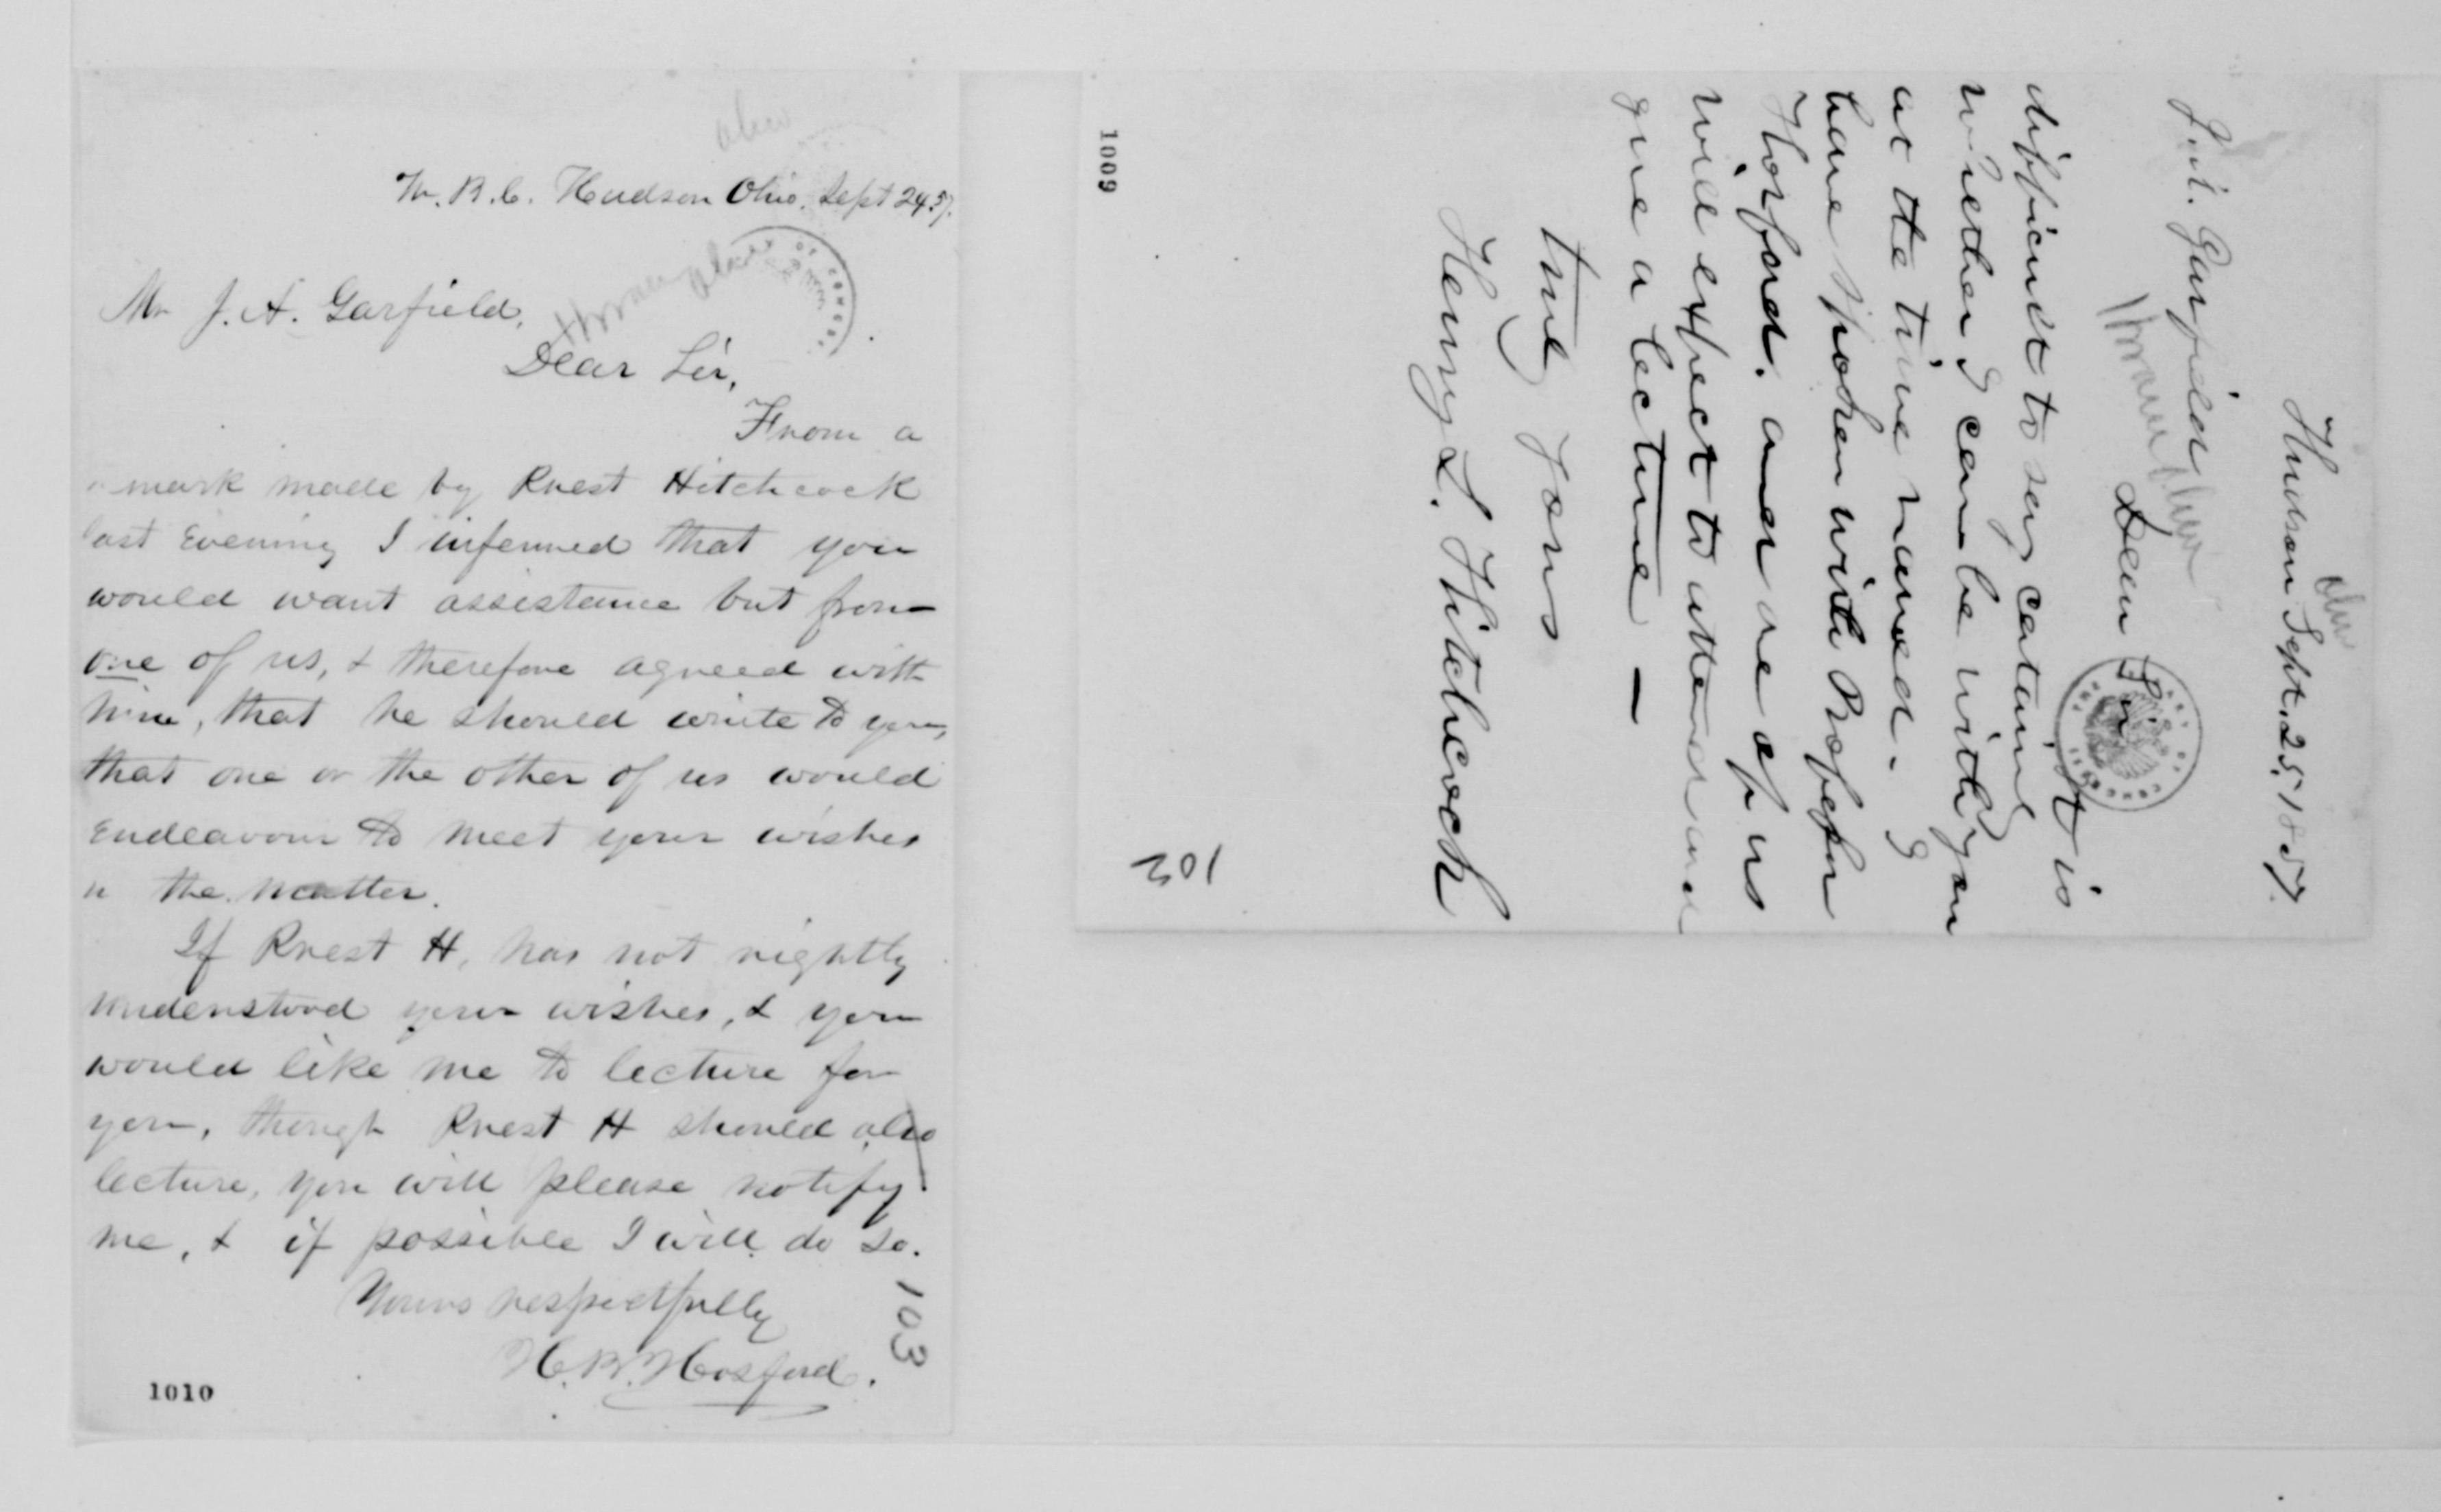 W. R. C. Hudson Ohio, Sept 24.57.
Mr J. A. Garfield,
Dear Sir,
From a
remark made by Prest Hitchcock
last Evening I inferred that you
would want assistance but from
one of us, & therefore agreed with
him, that he should write to you,
that one or the other of us would
Endeavour to meet your wishes
in the matter.
If Prest H, has not rightly
understood your wishes, & you
would like me to lecture for
you, though Prest H should also
lecture, you will please notify
me, & if possible I will do so.
Yours respectfully
H. B. Hosford.
103
1010
Hudson Sept. 25, 1857.
J. A. Garfield
Dear Sir
It is
difficult to say certainly
whether I can be with you
at the time named. I
have spoken with Professor
Hosford, and one of us
will expect to attend and
give a lecture —
Truly yours
Henry L. Hitchcock
102
1009